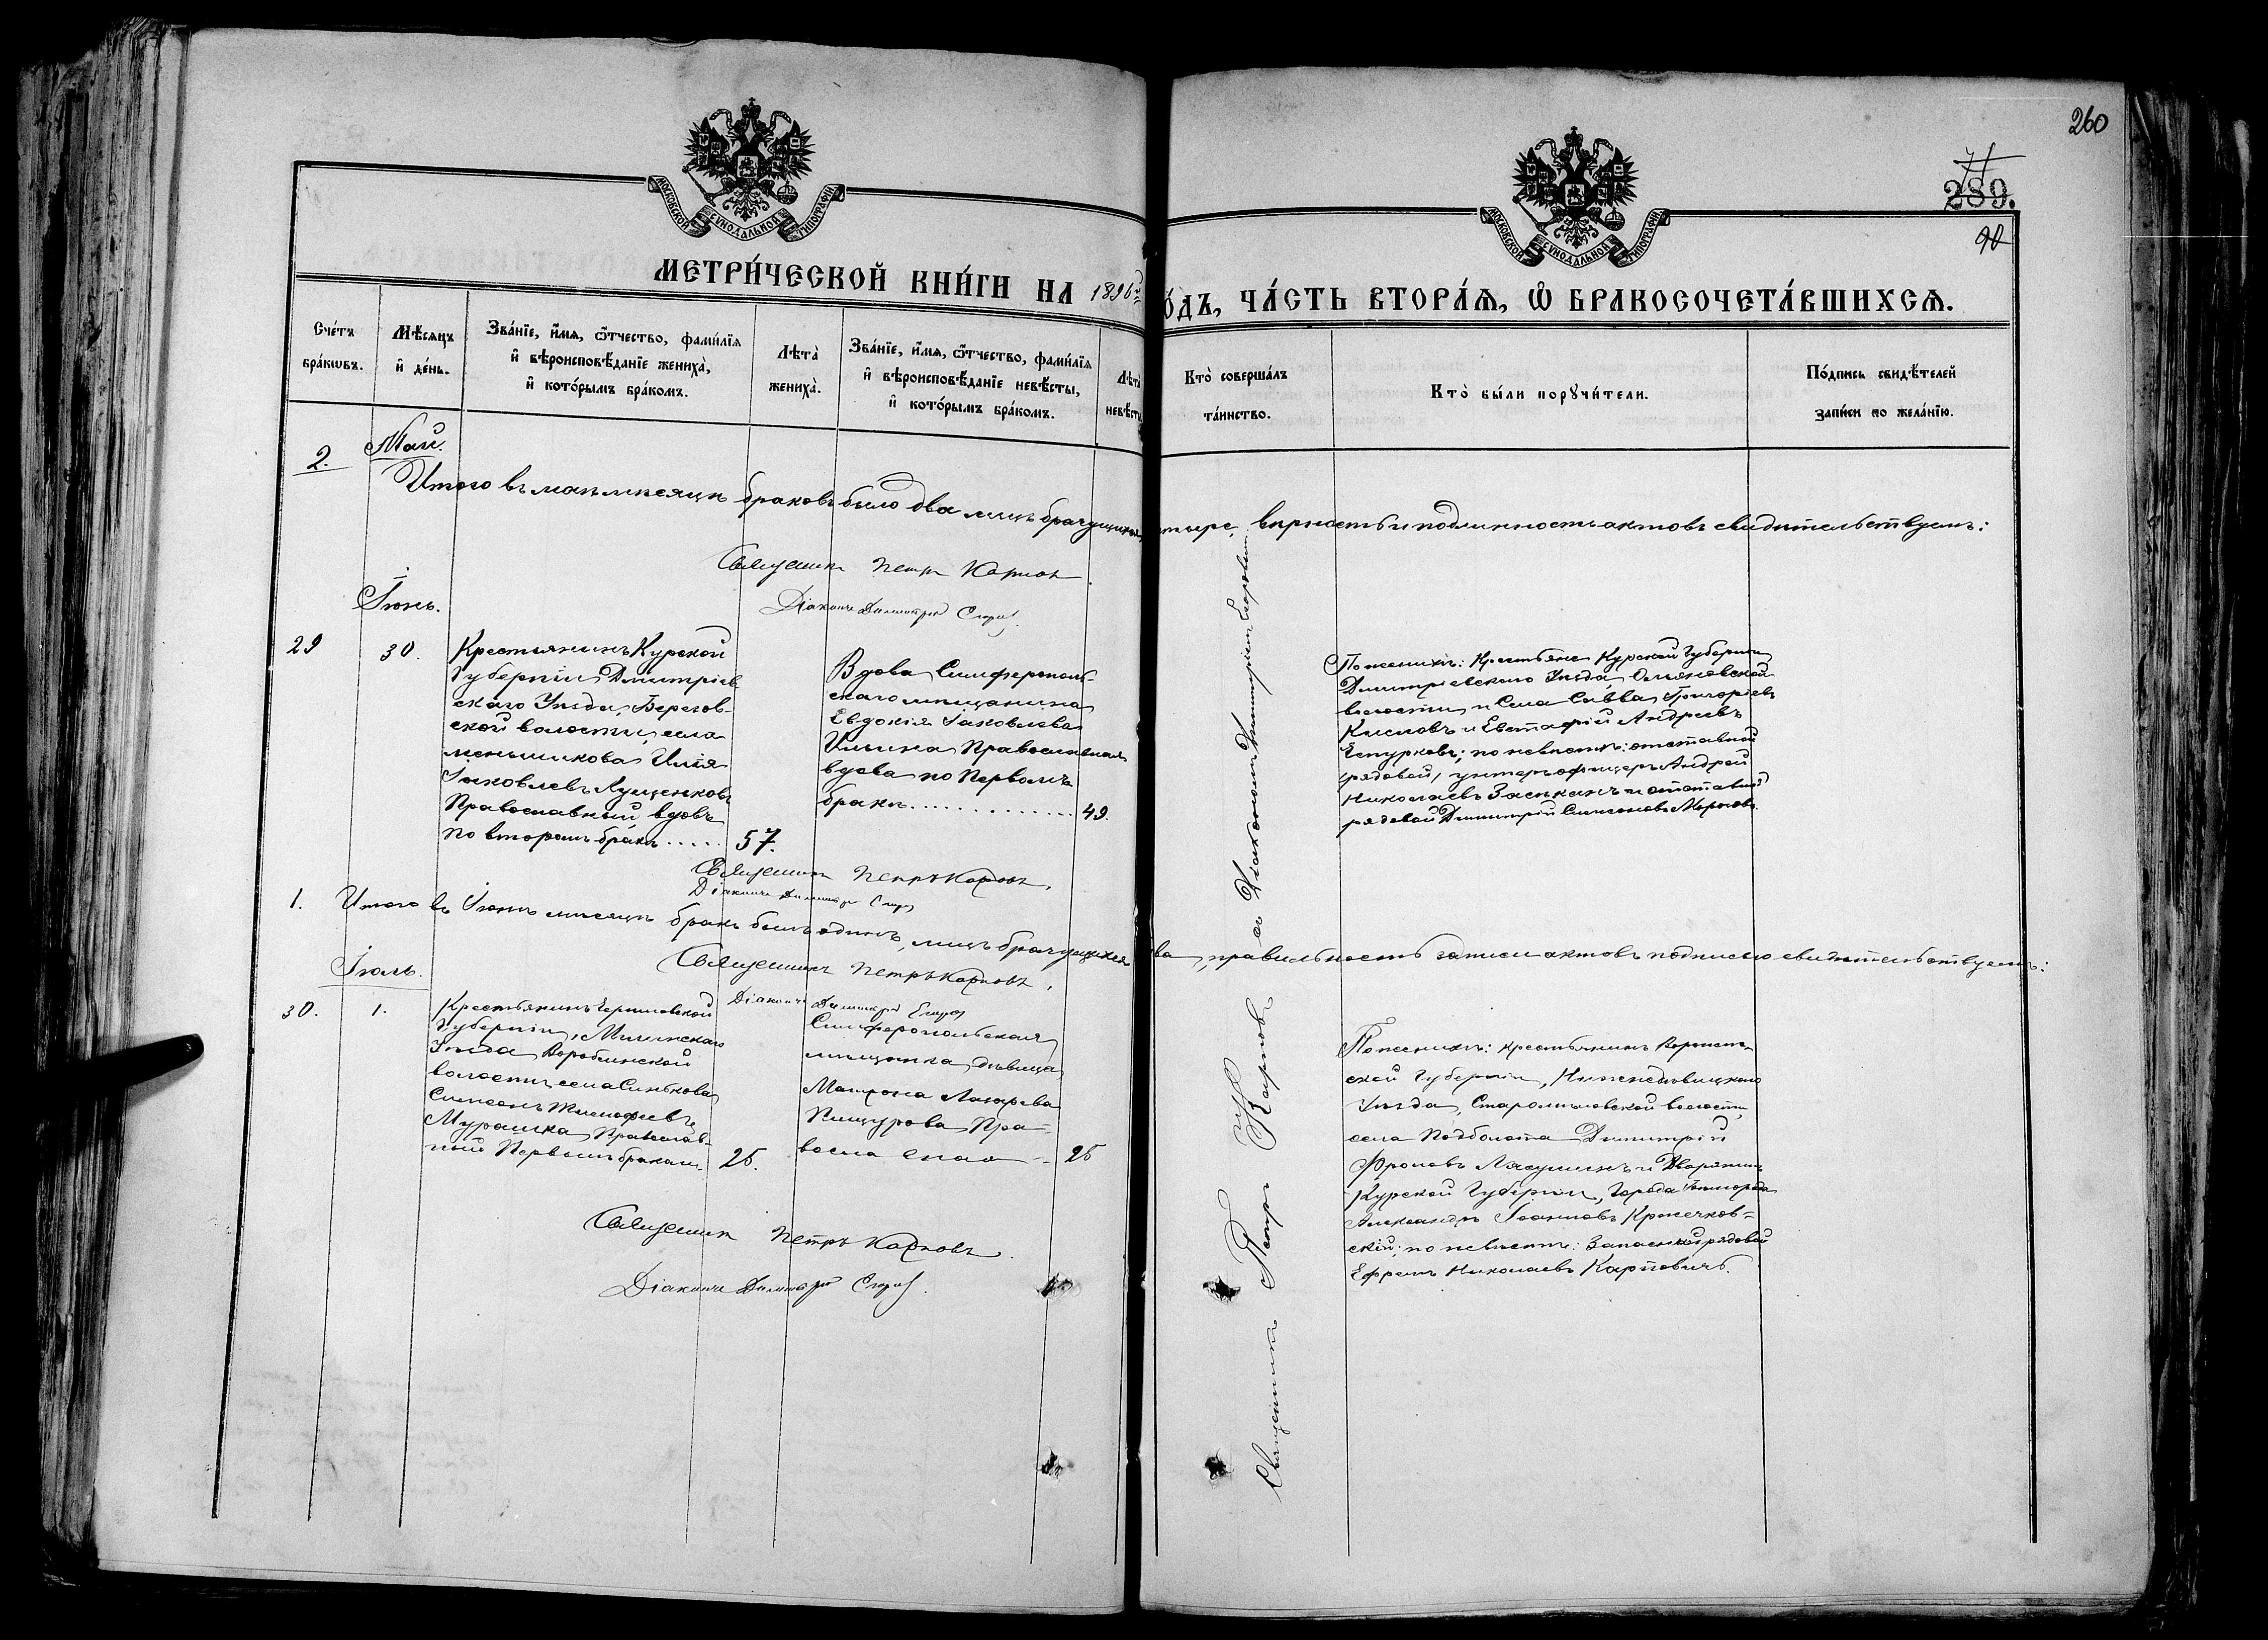 260
289.
90
МОСКОВСКОЙ СѴНОДАЛЬНОЙ ТИПОГРАФІИ
МОСКОВСКОЙ СѴНОДАЛЬНОЙ ТИПОГРАФІИ
МЕТРИ́ЧЕСКОЙ КНИ́ГИ НА 1896й
О́ДЪ, ЧА́СТЬ ВТОРА́Я, Ѽ БРАКОСОЧЕТА́ВШИХСѦ.
Сче́тъ
бра́кѡвъ.
Мѣ́сяцъ
и҆ де́нь.
Зва́нїе, и҆́мя, ѻ҆́тчество, фами́лїя
и҆ вѣроисповѣ́данїе жениха̀,
и҆ кото́рымъ бра́комъ.
Лѣта̀
жениха̀.
Зва́нїе, и҆́мя, ѻ҆́тчество, фами́лїя
и҆ вѣроисповѣ́данїе невѣ́сты,
и҆ кото́рымъ бра́комъ.
Лѣта̀
невѣ́сты
Кто̀ соверша́лъ
та́инство.
Кто̀ бы́ли порꙋчи́тели.
По́дпись свидѣ́телей
за́писи по жела́нїю.
2.
Май.
Итого въ маѣ мѣсяцѣ браковъ было два лицъ брачущихся
тыре, вѣрность и подлинность актовъ свидѣтельствуемъ:
Священникъ Петръ Карповъ
Діаконъ Димитрій
Іюнь.
29
30.
Крестьянинъ Курской
Губерніи Дмитріев
скаго Уѣзда, Берегов-
ской волости, села
Меньшикова Илія
Іаковлевъ Лущенковъ
Православный, вдовъ
по второмъ бракѣ.....
57.
Вдова Симферополь-
скаго мѣщанина
Евдокія Іаковлева
Ильина Православная
вдова по Первомъ
бракѣ..............
49.
По женихѣ: Крестьяне Курской Губерніи
Дмитріевскаго Уѣзда
волости и Села Савва Григоріевъ
Кисловъ и Евстафій Андреевъ
Чепурковъ; по невѣстѣ: отставной
(рядовой) унтеръ офицеръ Андрей
Николаевъ и отставной
рядовой Димитрій Симеоновъ
Священникъ Петръ Карповъ.
Діаконъ Димитрій
1.
Итого въ Іюнѣ мѣсяцѣ бракъ былъ одинъ, лицъ брачущихся
ва, правильность записи актовъ подписью свидѣтельствуемъ:
Священникъ Петръ Карповъ.
Діаконъ Димитрій
Іюль.
30.
1.
Крестьянинъ Черниговской
Губерніи, Мглинскаго
Уѣзда
волости села Синькова
Симеонъ Тимофеевъ
Мурашка Православ-
ный Первымъ бракомъ
25.
Симферопольская
мѣщанка, дѣвица
Матрона Лазарева
Пищурова Пра-
восла вная
26
По женихѣ: крестьянинъ Воронеж-
ской Губерніи, Нижнедѣвицкаго
Уѣзда, волости
села Димитрій
Фроловъ и Дворянинъ
Курской Губерніи, Города
Александръ Іоанновъ Кржечков-
скій; по невѣстѣ: Запасный рядовой
Ефремъ Николаевъ Карповичъ.
Священникъ Петръ Карповъ.
Діаконъ Димитрій
Священникъ Петръ Карповъ
съ Діакономъ Димитріемъ